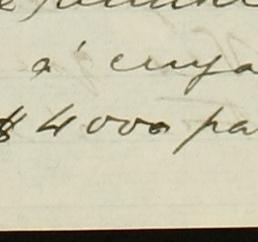 á cuya
$4000 pa